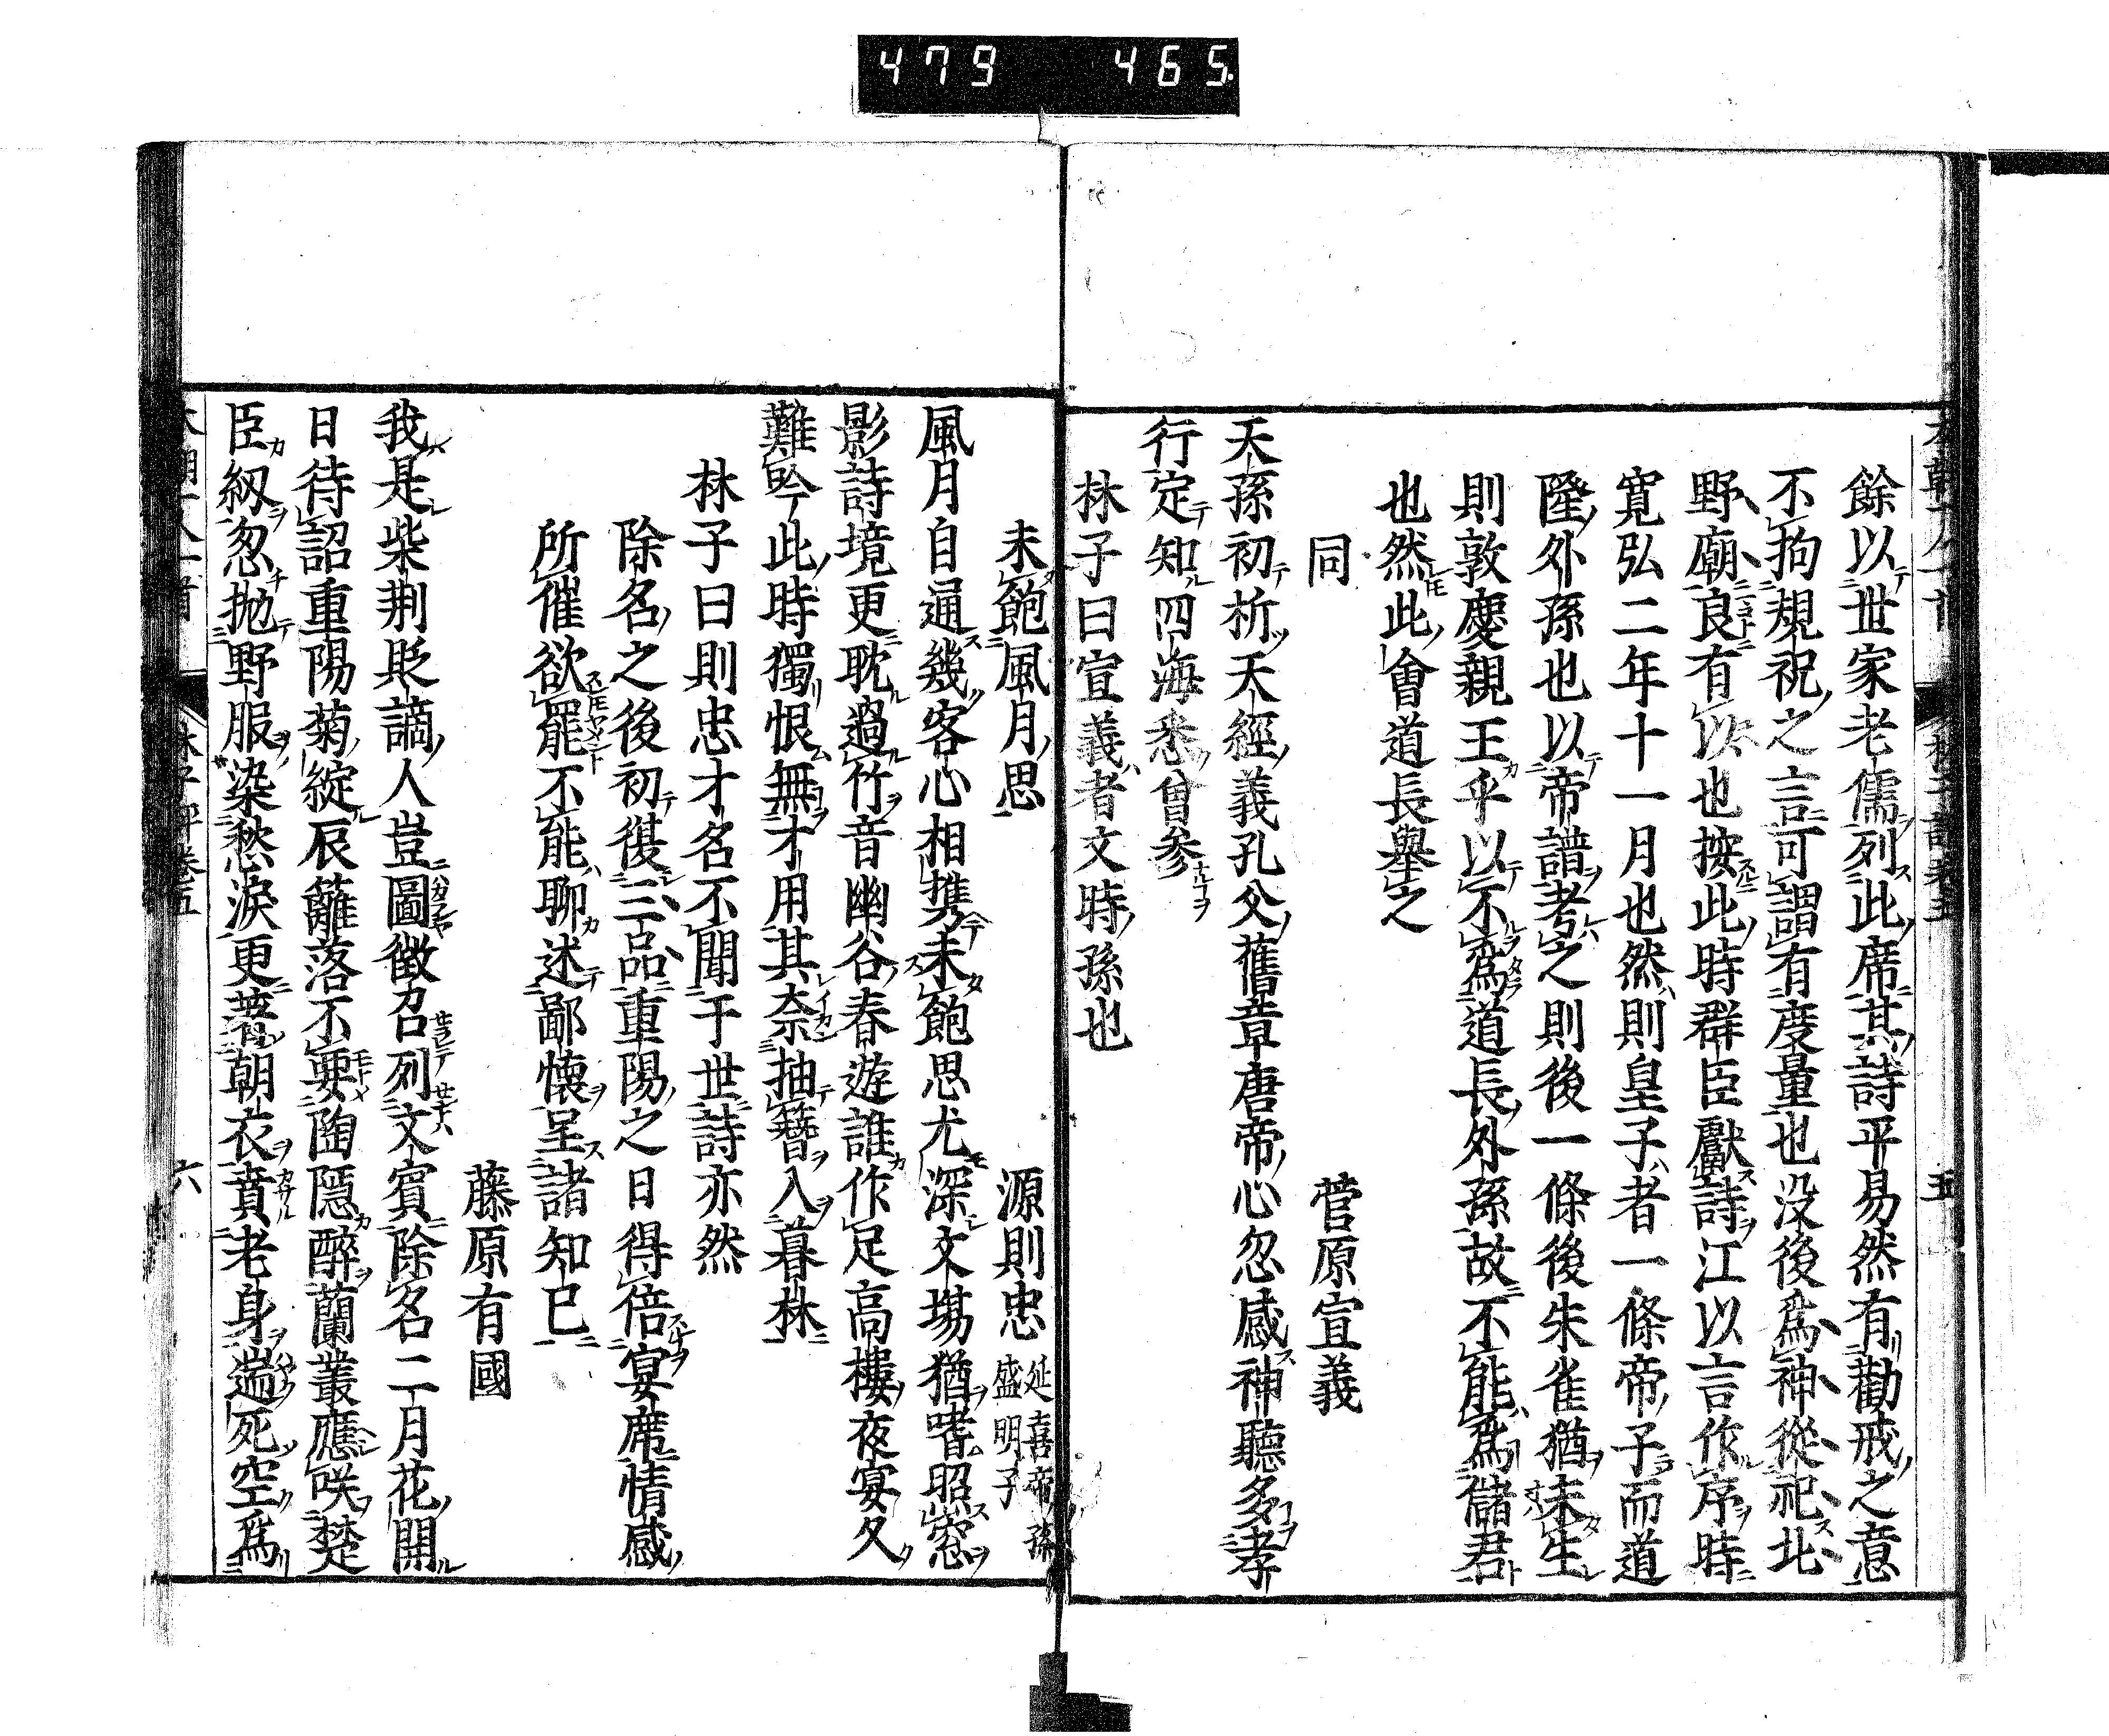 479 465
五
餘以世家老儒列此席其詩平易然有勸戒之意
不拘規祝之言可謂有度量也没後爲神從祀北
野廟良有以也按此時群臣獻詩江以言作序時
寛弘二年十一月也然則皇子者一條帝子而道
隆外孫也以帝譜考之則後一條後朱雀猶未生
則敦慶親王乎以不爲道長外孫故不能爲儲君
也然此會道長舉之
同 菅原宣義
天孫初析天經義孔父舊章唐帝心忽感神聽多孝
行定知四海悉曾参
林子曰宣義者文時孫也
未飽風月思 源則忠 延喜帝孫盛明子
風月自通幾客心相携未飽思尤深文場猶嗜照窓
影詩境更耽過竹音幽谷春遊誰作足高樓夜宴久
難吟此時獨恨無才用其奈抽簪入暮林
林子曰則忠才名不聞于世詩亦然
除名之後初復三品重陽之日得倍宴席情感
所催欲罷不能聊述鄙懷呈諸知已
藤原有國
我是柴荆貶謫人豈圖徴召列文賓除名二月花開
日待詔重陽菊綻辰籬落不要陶隱醉蘭叢應咲楚
臣紉忽抛野服染愁淚更著朝衣賁老身遄死空爲
林子評卷五
六